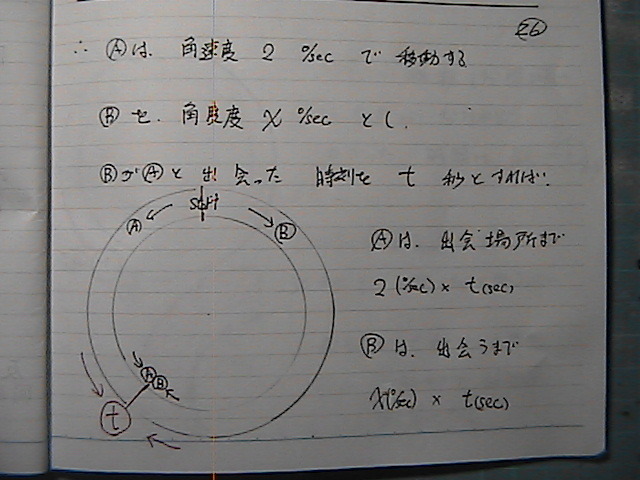 26
∴ Ⓐは、角速度 2 °/sec で 移動する
Ⓑを、角速度 χ °/sec とし、
ⒷがⒶと出会った 時刻を t 秒とすれば、
start
Ⓐ
Ⓑ
Ⓐは、出会場所まで
2 (°/sec) × t(sec)
Ⓑは、出会うまで
χ(°/sec) × t(sec)
ⒶⒷ
t